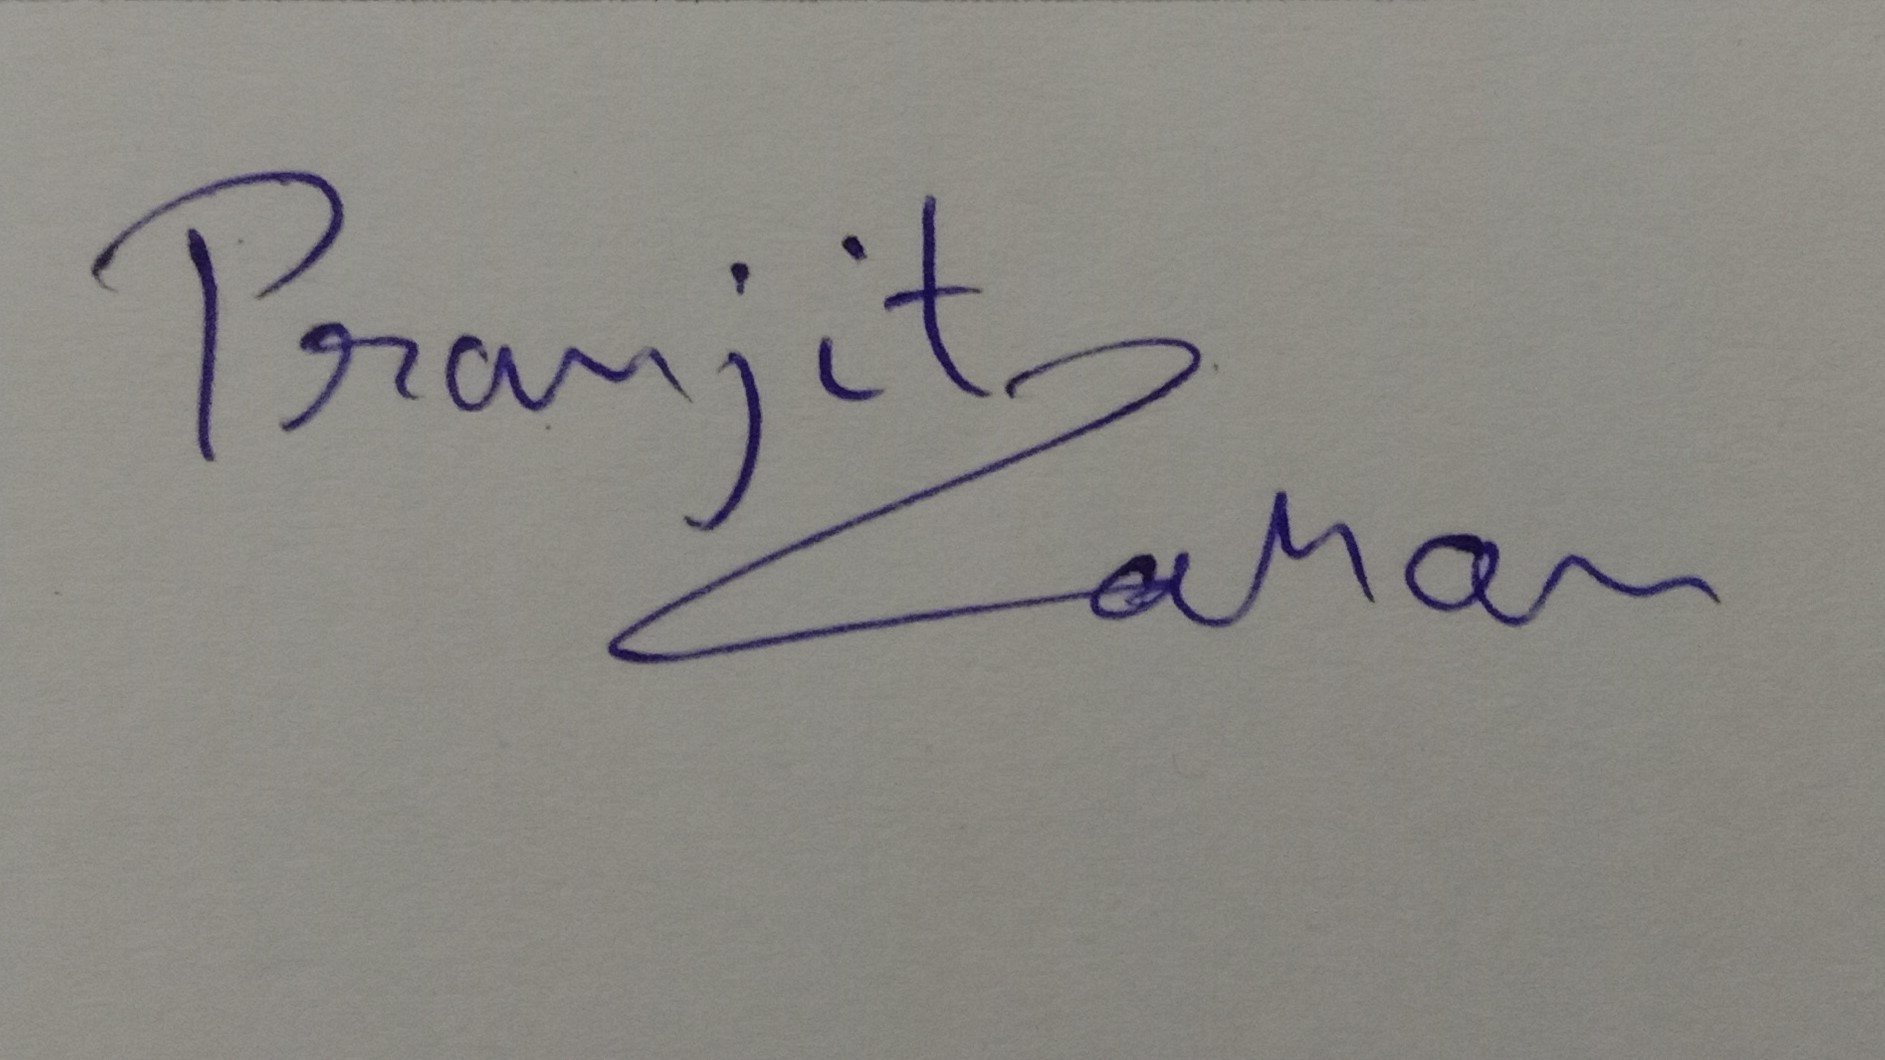 Pranjit
Zaman